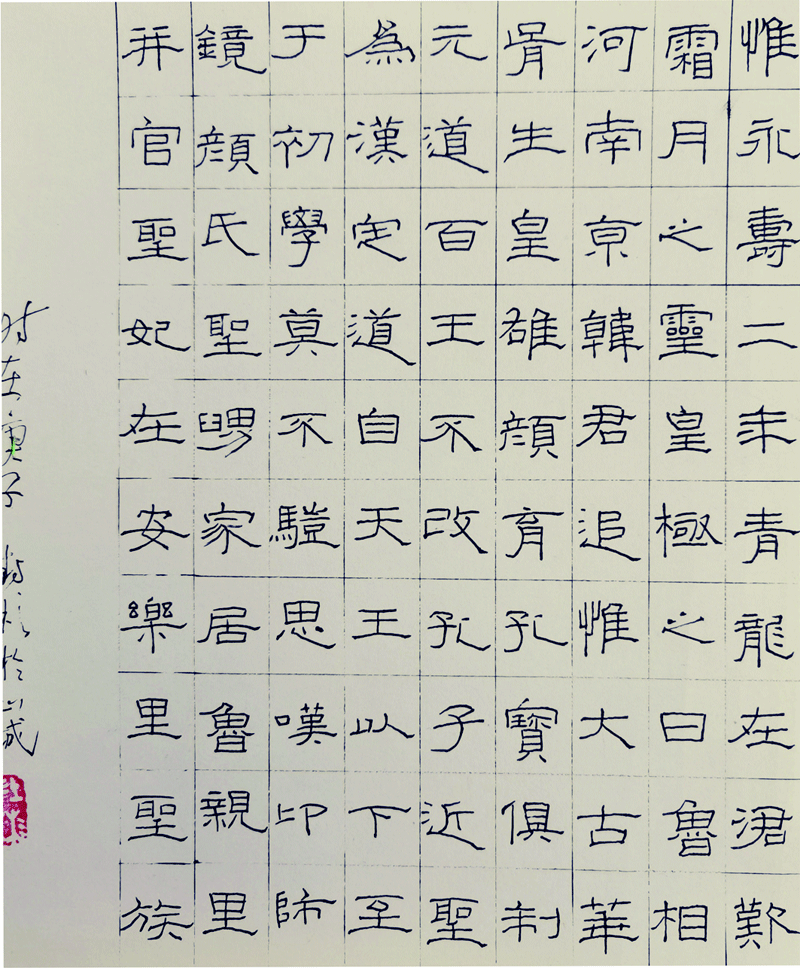 惟永壽二年青龍在涒歎
霜月之靈皇極之日魯相
河南京韓君追惟大古華
胥生皇雄顏育孔寶俱制
元道百王不改孔子近聖
為漢定道自天王以下至
于初學莫不驥思嘆卬師
鏡顏氏聖舅家居魯親里
并官聖妃在安樂里聖族
时在庚子